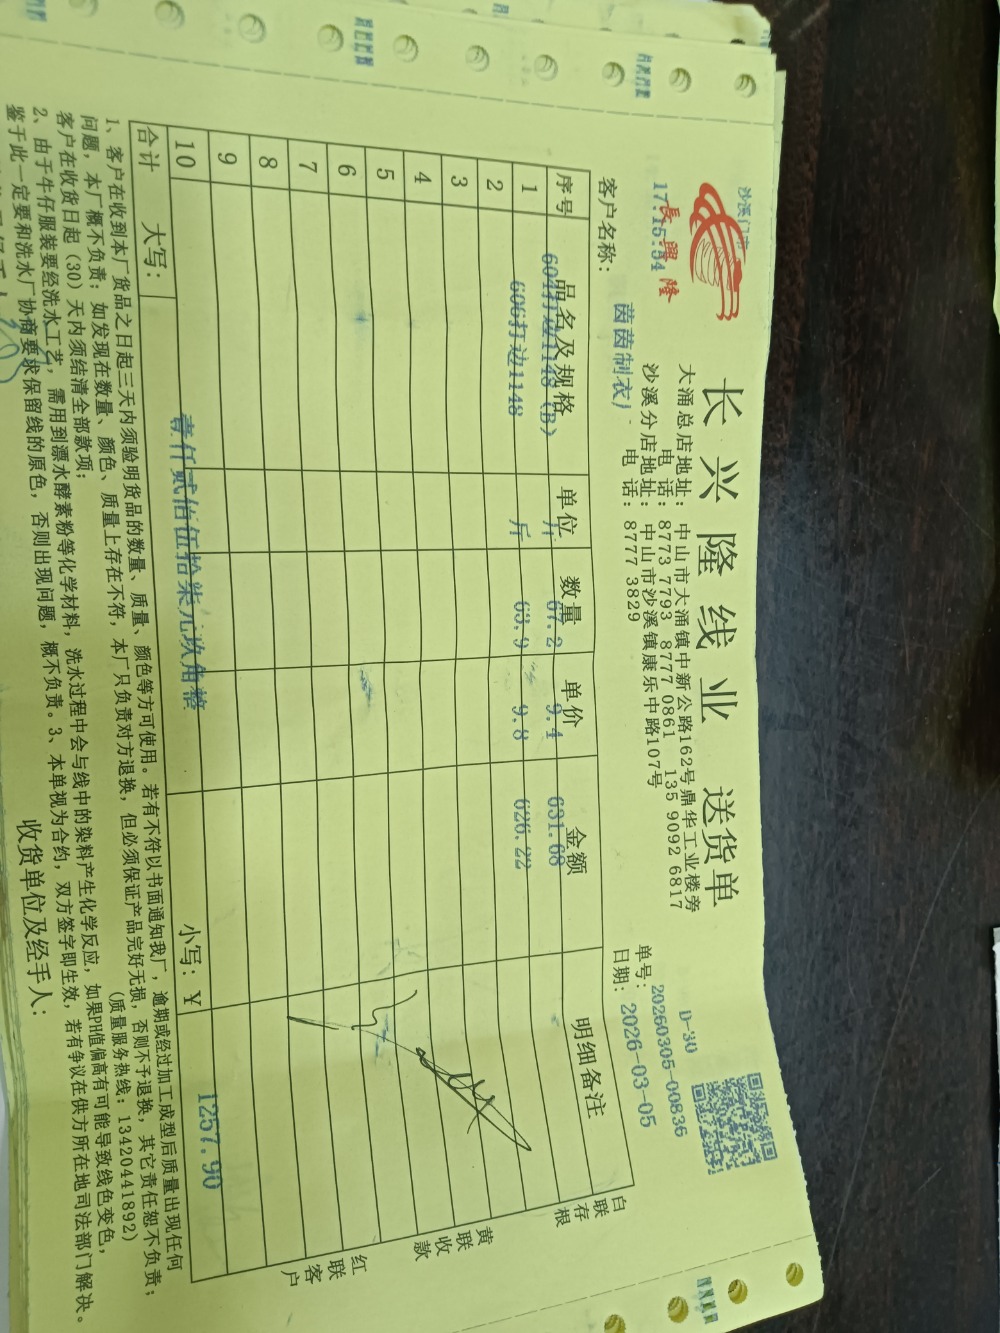 沙溪门市
長興隆
17:15:54
长兴隆线业 送货单
大涌总店地址：中山市大涌镇中新公路162号鼎华工业楼旁
电 话：8773 7793 8777 0861 135 9092 6817
沙溪分店地址：中山市沙溪镇康乐中路107号
电 话：8777 3829
D-30
单号：20260305-00836
客户名称：茵茵制衣厂
日期：2026-03-05
序号 品名及规格 单位 数量 单价 金额 明细备注
1148 (B) 斤 67.2 9.4 631.68
1 606打边1148 斤 63.9 9.8 626.22
2
3
4
5
6
7
8
9
10
合计 大写：壹仟贰佰伍拾柒元玖角整 小写：￥ 1257.90
白联存根
黄联收款
红联客户
1、客户在收到本厂货品之日起三天内须验明货品的数量、质量、颜色等方可使用。若有不符以书面通知我厂，逾期或经过加工成型后质量出现任何
问题，本厂概不负责；如发现在数量、颜色、质量上存在不符，本厂只负责对方退换，但必须保证产品完好无损，否则不予退换，其它责任恕不负责；
客户在收货日起（30）天内须结清全部款项； （质量服务热线：13420441892）
2、由于牛仔服装要经洗水工艺，需用到漂水酵素粉等化学材料，洗水过程中会与线中的染料产生化学反应，如果PH值偏高有可能导致线色变色，
鉴于此一定要和洗水厂协商要求保留线的原色，否则出现问题，概不负责。3、本单视为合约，双方签字即生效，若有争议在供方所在地司法部门解决。
收货单位及经手人：